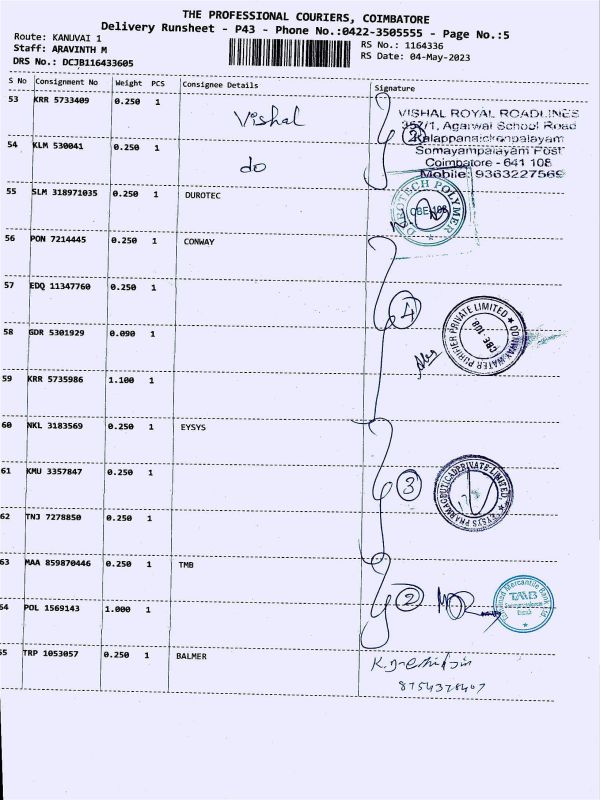 THE PROFESSIONAL COURIERS, COIMBATORE
Delivery Runsheet - P43 - Phone No.:0422-3505555 - Page No.:5
Route: KANUVAI 1
Staff: ARAVINTH M
DRS No.: DCJB116433605
RS No.: 1164336
RS Date: 04-May-2023
S No Consignment No Weight PCS Consignee Details Signature
53 KRR 5733409 0.250 1 Vishal
2
VISHAL ROYAL ROADLINES
352/1, Agarwal School Road
Kalappanaickenpalayam
Somayampalayam Post
Coimbatore - 641 108
Mobile: 9363227569
54 KLM 530041 0.250 1 do
55 SLM 318971035 0.250 1 DUROTEC
DUROTECH POLYMER
CBE-108
56 PON 7214445 0.250 1 CONWAY
57 EDQ 11347760 0.250 1
4
WATER PURIFIER PRIVATE LIMITED
CBE-108
58 GDR 5301929 0.090 1
59 KRR 5735986 1.100 1
60 NKL 3183569 0.250 1 EYSYS
61 KMU 3357847 0.250 1
3
EYSYS PRIVATE LIMITED
62 TNJ 7278850 0.250 1
63 MAA 859870446 0.250 1 TMB
2
Mercantile Bank Ltd
TMB
64 POL 1569143 1.000 1
55 TRP 1053057 0.250 1 BALMER
8754378407